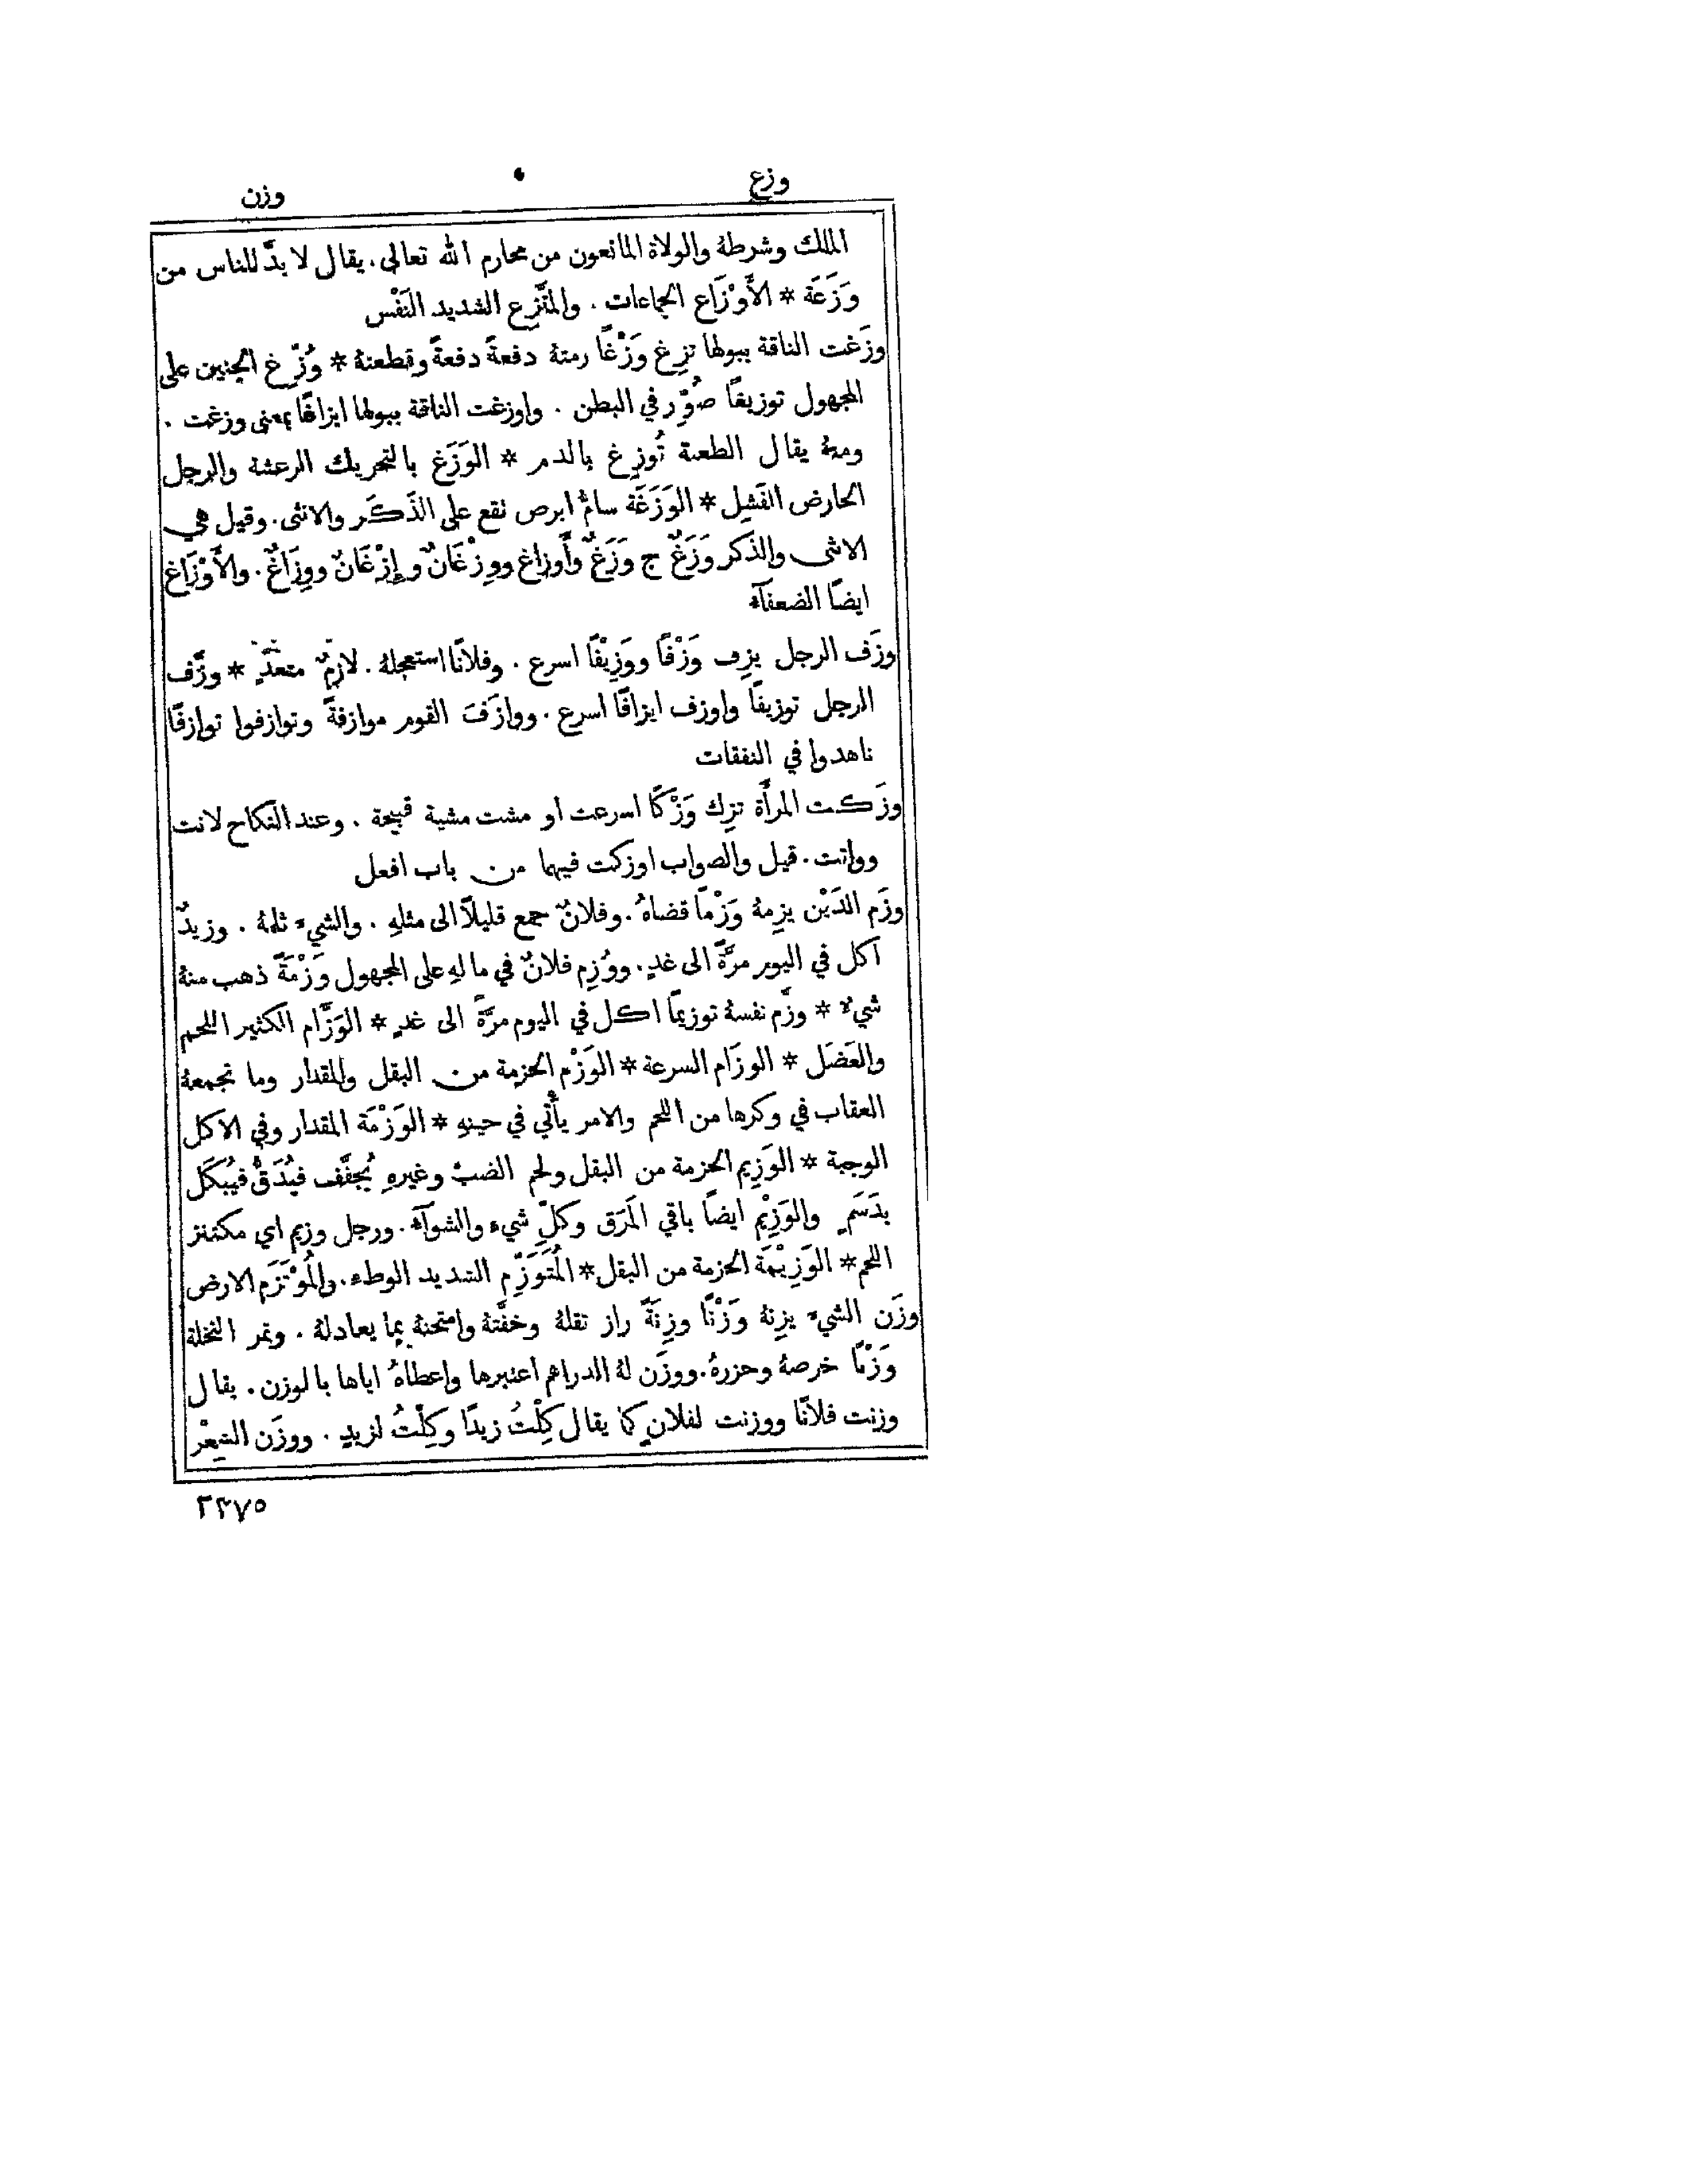 وزع
وزن
الملك وشرطهُ والولاة المانعون من محارم الله تعالى. يقال لا بدَّ للناس من
وَزَعَة * الأَوْزَاع الجماعات. والمتَّزِع الشديد النَفْس
وزَغت الناقة ببولها تزِغ وَزْغًا رمتهُ دفعةً دفعةً وقطعتهُ * وُزِّغ الجنين على
المجهول توزيغًا صُوِّر في البطن. واوزغت الناقة ببولها ايزاغًا بمعنى وزغت.
ومنهُ يقال الطعنة تُوزِغ بالدم * الوَزَغ بالتحريك الرعشة والرجل
الحارض الفَشِل * الوَزَغَة سامُّ ابرص تقع على الذَكَر والانثى. وقيل هي
الانثى والذكر وَزَغٌ ج وَزَغٌ وأَوزاغ ووِزْغَانٌ وإِزْغَانٌ ووِزَاغٌ. والأَوْزَاغ
ايضًا الضعفآء
وزَف الرجل يزِف وَزْفًا ووَزِيْفًا اسرع. وفلانًا استعجلهُ. لازمٌ متعدٍّ * وزَّف
الرجل توزيفًا واوزف ايزافًا اسرع. ووازَفَ القوم موازفةً وتوازفوا توازفًا
ناهدوا في النفقات
وزَكت المرأَة تزِك وَزْكًا اسرعت او مشت مشية قبيحة. وعند النكاح لانت
وواتت. قيل والصواب اوزكت فيهما من باب افعل
وزَم الدَيْن يزِمهُ وَزْمًا قضاهُ. وفلانٌ جمع قليلًا الى مثلهِ. والشيءَ ثلمهُ. وزيدٌ
اكل في اليوم مرَّةً الى غدٍ. ووُزِم فلانٌ في مالهِ على المجهول وَزْمَةً ذهب منهُ
شيءٌ * وزَّم نفسهُ توزيمًا اكل في اليوم مرَّةً الى غدٍ * الوَزَّام الكثير اللحم
والعَضَل * الوزَام السرعة * الوَزْم الحزمة من البقل والمقدار وما تجمعهُ
العقاب في وكرها من اللحم والامر يأْتي في حينهِ * الوَزْمَة المقدار وفي الاكل
الوجبة * الوَزِيم الحزمة من البقل ولحم الضبّ وغيرهِ يُجفَّف فيُدَقُّ فيُبكَل
بدَسَمٍ والوَزِيْم ايضًا باقي المَرَق وكلِّ شيء والشوآء. ورجل وزيم اي مكتنز
اللحم * الوَزِيْمَة الحزمة من البقل * المُتَوَزِّم الشديد الوطء. والمُوْتَزَم الارض
وزَن الشيءَ يزِنهُ وَزْنًا وزِنَةً راز ثقلهُ وخفَّتهُ وامتحنهُ بما يعادلهُ. وثمر النخلة
وَزْنًا خرصهُ وحزرهُ. ووزَن لهُ الدراهم اعتبرها واعطاهُ اياها بالوزن. يقال
وزنت فلانًا ووزنت لفلانٍ كما يقال كِلْتُ زيدًا وكِلْتُ لزيدٍ. ووزَن الشِعْر
٢٢٧٥